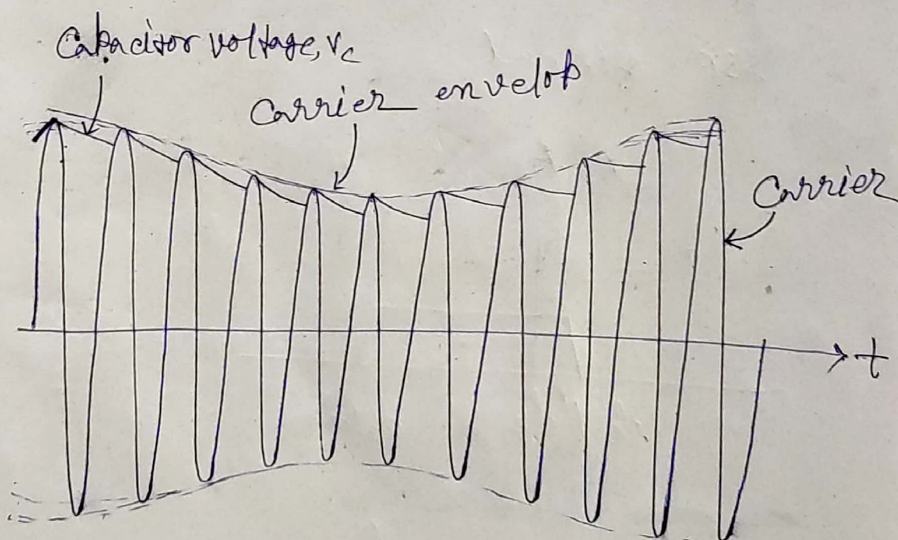 Capacitor voltage, vc
Carrier envelop
Carrier
t